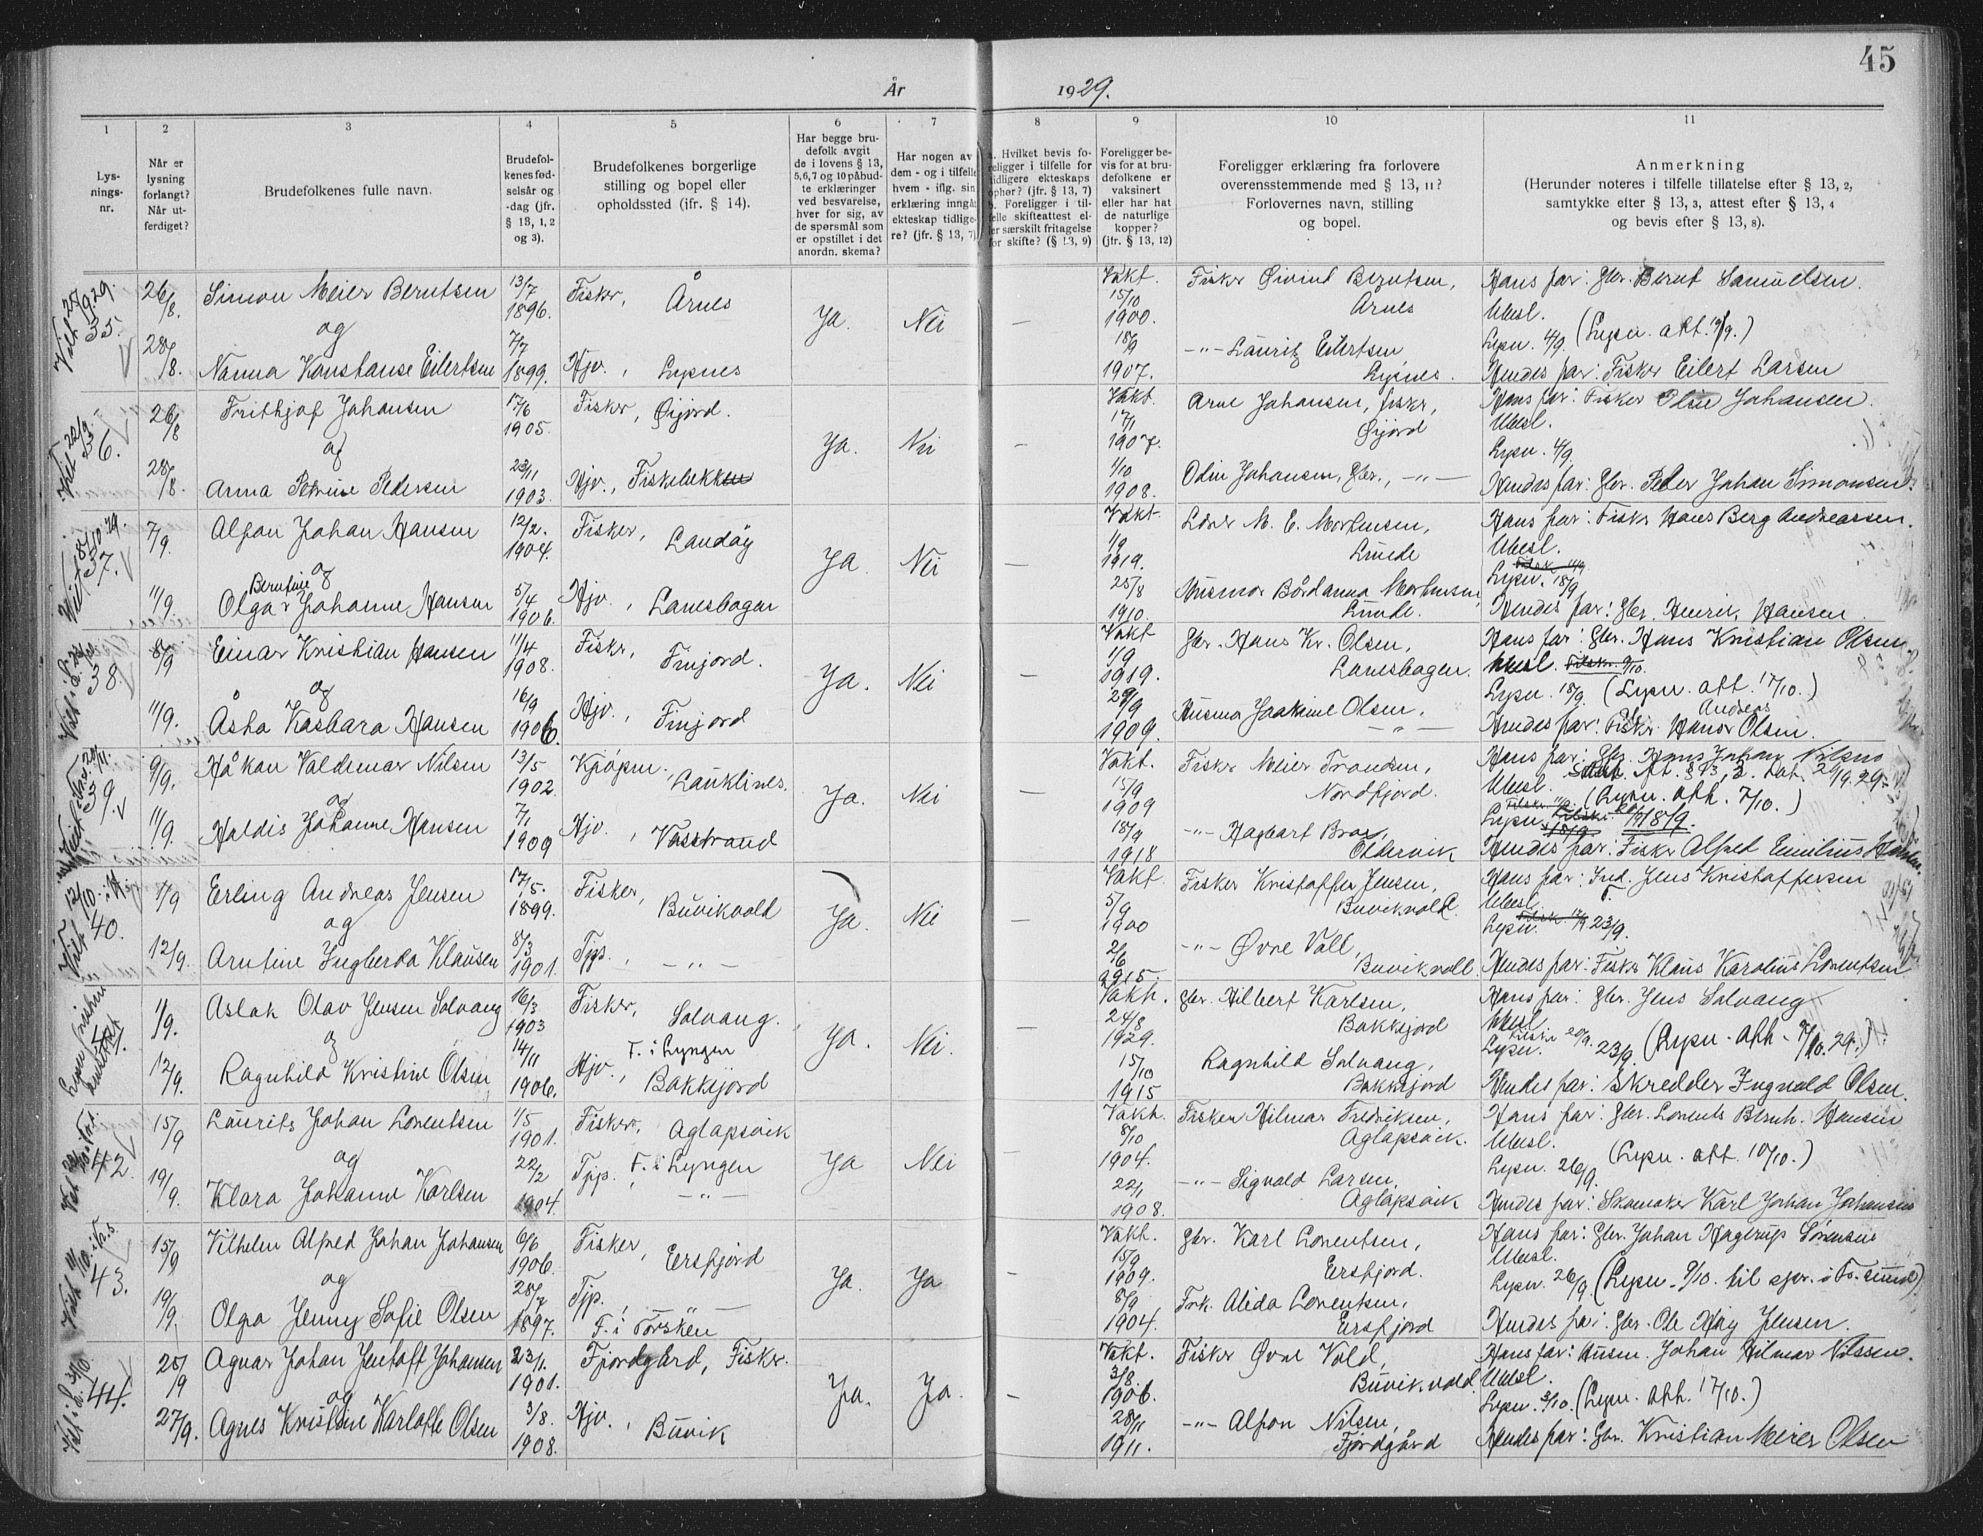 45
År 1929.
1 2 3 4 5 6 7 8 9 10 11
Lysningsnr.
Når er lysning forlangt? Når utferdiget?
Brudefolkenes fulle navn.
Brudefolkenes fødselsår og -dag (jfr. § 13, 1, 2 og 3).
Brudefolkenes borgerlige stilling og bopel eller opholdssted (jfr. § 14).
Har begge brudefolk avgit de i lovens § 13, 5, 6, 7 og 10 påbudte erklæringer ved besvarelse, hver for sig, av de spørsmål som er opstillet i det anordn. skema?
Har nogen av dem - og i tilfelle hvem - iflg. sin erklæring inngått ekteskap tidligere? (jfr. § 13, 7)
a. Hvilket bevis foreligger i tilfelle for tidligere ekteskaps ophør? (jfr. § 13, 7) b. Foreligger i tilfelle skifteattest eller særskilt fritagelse for skifte? (§ 13, 9)
Foreligger bevis for at brudefolkene er vaksinert eller har hat de naturlige kopper? (jfr. § 13, 12)
Foreligger erklæring fra forlovere overensstemmende med § 13, 11? Forlovernes navn, stilling og bopel.
Anmerkning (Herunder noteres i tilfelle tillatelse efter § 13, 2, samtykke efter § 13, 3, attest efter § 13, 4 og bevis efter § 13, 8).
35.
26/8. Simon Meier Berntsen 13/7 1896. Fisker, Årnes Ja. Nei — Vakt. 15/10 1900. Fisker Øivind Berntsen, Årnes Hans far: Gbr. Bernt Samuelsen.
og Ubesl.
Lysn. 4/9. (Lysn. att. 19/9.)
28/8. Nanna Konstanse Eilertsen 7/7 1899. Hjv., Lysnes 18/9 1907. -"- Lauritz Eilertsen, Lysnes. Hendes far: Fisker Eilert Larsen
36.
26/8 Frithjof Johansen 17/6 1905. Fisker, Øijord. Ja. Nei — Vakt. 17/1 1907. Arne Johansen, fisker, Øijord Hans far: Fisker Johansen.
og Ubesl.
Lysn. 4/9.
28/8. Anna Petrine Pedersen 23/11 1903. Hjv., Fiskebekken 1/10 1908. Odin Johansen, Gbr., -"- Hendes far: Gbr. Peder Johan Simonsen.
37.
7/9. Alfon Johan Hansen 12/2. 1904. Fisker, Landøy Ja. Nei — Vakt. 1/9 1919. Lærer M. E. Morhensen, Lunde Hans far: Fisker Hans Berg Andreassen.
og Ubesl.
Lysn. 18/9
11/9. Olga Berntine Johanne Hansen 5/4 1906. Hjv., Lanesbogen 25/8 1910. Husmor Bårdanna Morhensen, Lunde. Hendes far: Gbr. Henrik Hansen.
38.
8/9 Einar Kristian Hansen 11/4 1908. Fisker, Finjord. Ja. Nei — Vakt 1/9 1919. Gbr. Hans Kr. Olsen, Lanesbogen. Hans far: Gbr. Hans Kristian Olsen
og Ubesl.
Lysn. 18/9 (Lysn. att. 17/10.)
11/9. Åsta Kasbara Hansen 16/9 1906. Hjv., Finjord 29/9 1909. Husmor Joakime Olsen, -"- Hendes far: Fisker Hans Andreas Olsen.
39.
9/9. Håkon Valdemar Nilsen 13/5 1902. Kjøpm., Lauklines. Ja. Nei — Vakt. 15/9 1909 Fisker Meier Trondsen, Nordfjord. Hans far: Gbr. Hans Johan Nilsen
og Ubesl.
(Lysn. att. 7/10.)
11/9. Haldis Johanne Hansen 7/1 1909 Hjv., Vasstrand 18/9 1918 -"- Hagbart Brox, Oldervik Hendes far: Fisker Alfred Emilius Hansen
40.
1/9 Erling Andreas Jensen 17/5. 1899. Fisker, Buvikvold Ja. Nei — Vakt. 5/9 1900 Fisker Kristoffer Jensen, Buvikvold. Hans far: Ind. Jens Kristoffersen
og Ubesl.
Lysn. 23/9.
12/9. Arntine Ingberda Klausen 8/3 1901. Tjp., -"- 2/6 1915. -"- Øvre Voll, Buvikvoll Hendes far: Fisker Klaus Karolius Lorentsen
1/9. Aslak Olav Jensen Solvang 16/3 1903 Fisker, Solvang. Ja. Nei. — Vakt. 24/8 1929. Gbr. Hilbert Karlsen, Bakkejord Hans far: Gbr. Jens Solvang
og F. i Lyngen Ubesl.
Lysn. 23/9. (Lysn. att. 9/10. 29.)
12/9. Ragnhild Kristine Olsen 14/11 1906. Hjv., Bakkejord 15/10 1915 Ragnhild Solvang, Bakkejord Hendes far: Skredder Ingvald Olsen.
42.
15/9 Laurits Johan Lorentsen 1/5 1901. Fisker, Aglapsvik Ja Nei — Vakt. 8/10 1904. Fisker Hilmar Fredriksen, Aglapsvik. Hans far: Gbr. Lorents Bernh. Hansen
og F. i Lyngen Ubesl.
Lysn. 26/9. (Lysn. att. 10/10.)
19/9. Klara Johanne Karlsen 22/2 1904. Tjp., -"- 22/1 1908. -"- Sigvald Larsen, Aglapsvik Hendes far: Skomaker Karl Johan Johansen
43.
15/9 Vilhelm Alfred Johan Johansen 6/6 1906. Fisker, Ersfjord Ja. Ja — Vakt. 15/9 1909. Gbr. Karl Lorentsen, Ersfjord. Hans far: Gbr. Johan Hagerup Sørensen
og Ubesl.
Lysn. 26/9 (Lysn. 9/10. til spr. i Tr.sund)
19/9. Olga Jenny Sofie Olsen 28/7 1897. Tjp., F. i Torsken 8/9 1904. Frk. Alida Lorentsen, Ersfjord Hendes far: Gbr. Ole Høy Jensen.
44.
25/9 Agnar Johan Jentoft Johansen 23/1. 1901. Fjordgård, Fisker. Ja. Ja. — Vakt. 3/8. 1906. Fisker Øvre Vold, Buvikvold. Hans far: Johan Hilmar Nilssen.
og Ubesl.
Lysn. 3/10. (Lysn. att. 17/10.)
27/9. Agnes Kristine Karlotte Olsen 3/8. 1908. Hjv., Buvik 28/11 1911. -"- Alfon Nilsen, Fjordgård Hendes far: Gbr. Kristian Meier Olsen